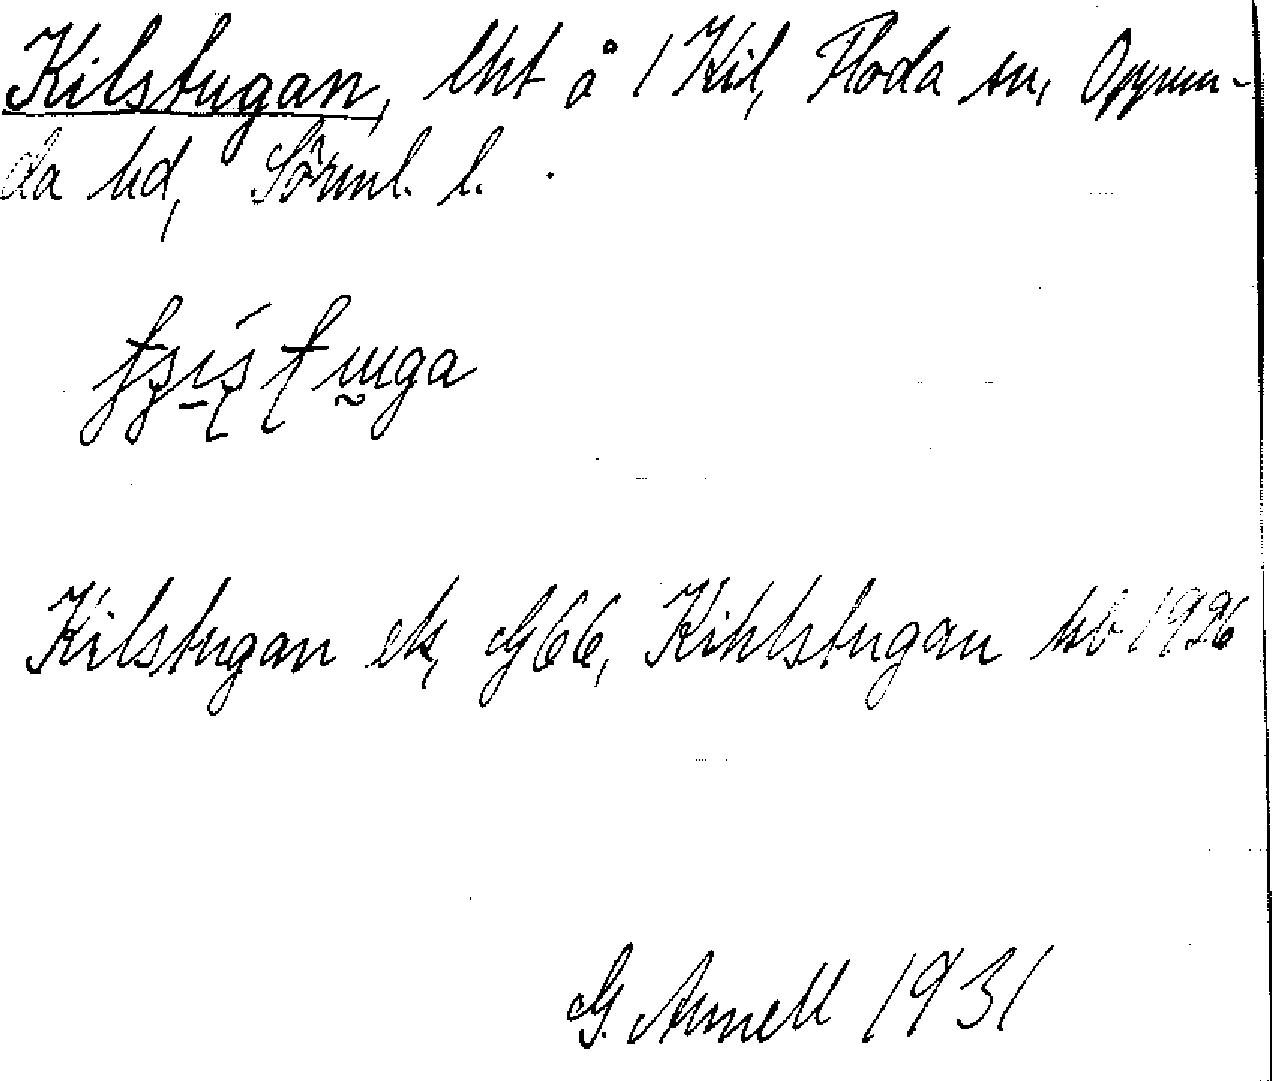 Kilstugan, lht å 1 Kil, Floda sn, Oppun-
da hd, Sörml. l.
Kilstugan ek, G66, Kihlstugan kb 1926
G. Arnell 1931